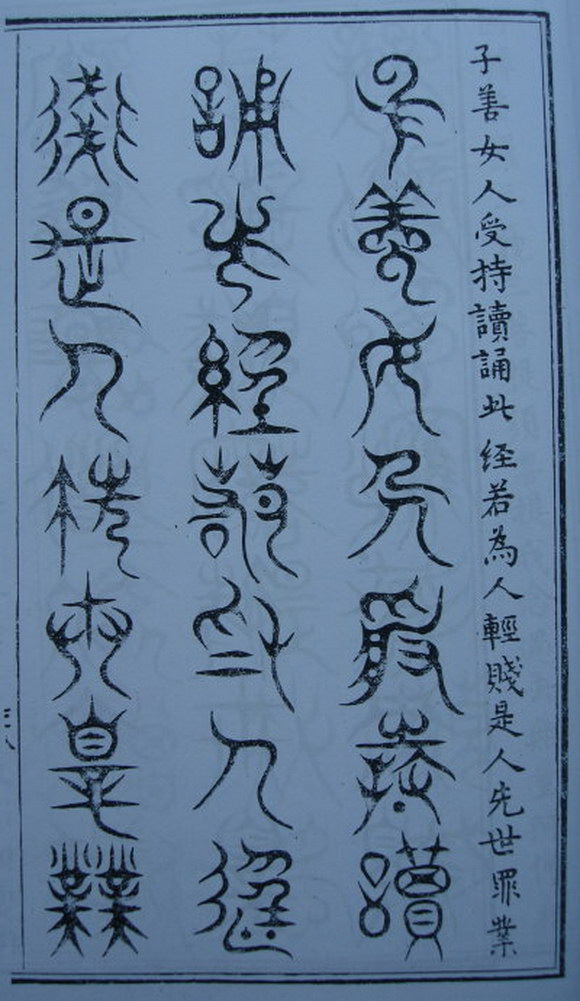 子善女人受持讀誦此経若為人輕賤是人先世罪業
子善女人受持讀
誦此經若為人輕
賤是人先世罪業